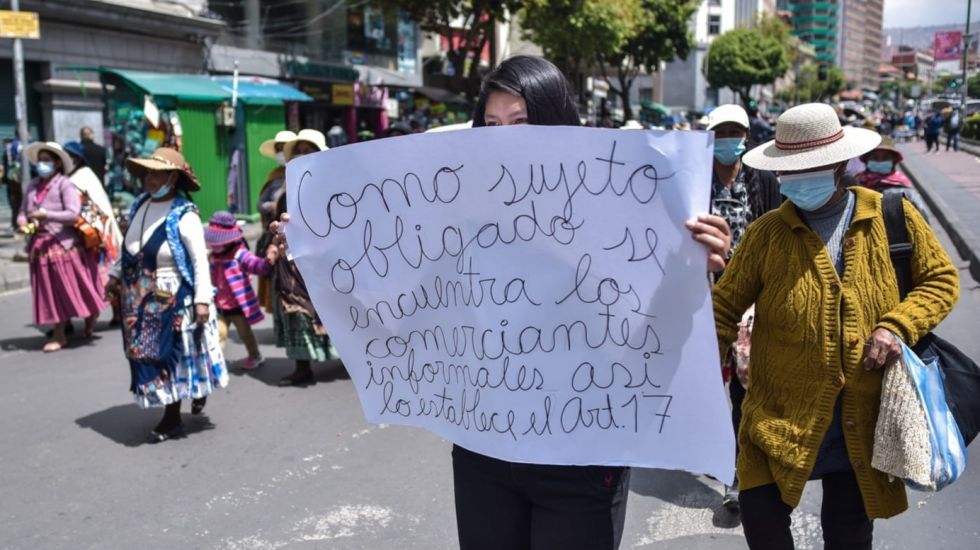 Como sujeto
obligado se
encuentra los
comerciantes
informales asi
lo establece el Art. 17